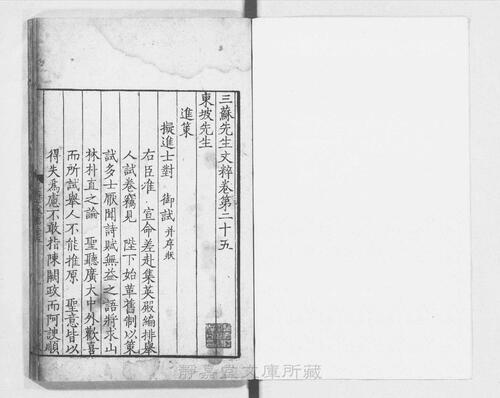 三蘇先生文粹卷第二十五
東坡先生
進策
擬進士對 御試 并序狀
右臣准 宣命差赴集英殿編排舉
人試卷竊見 陛下始革舊制以策
試多士厭聞詩賦無益之語將求山
林朴直之論 聖聽廣大中外歡喜
而所試舉人不能推原 聖意皆以
得失爲慮不敢指陳闕政而阿諛順
靜嘉堂文庫所藏